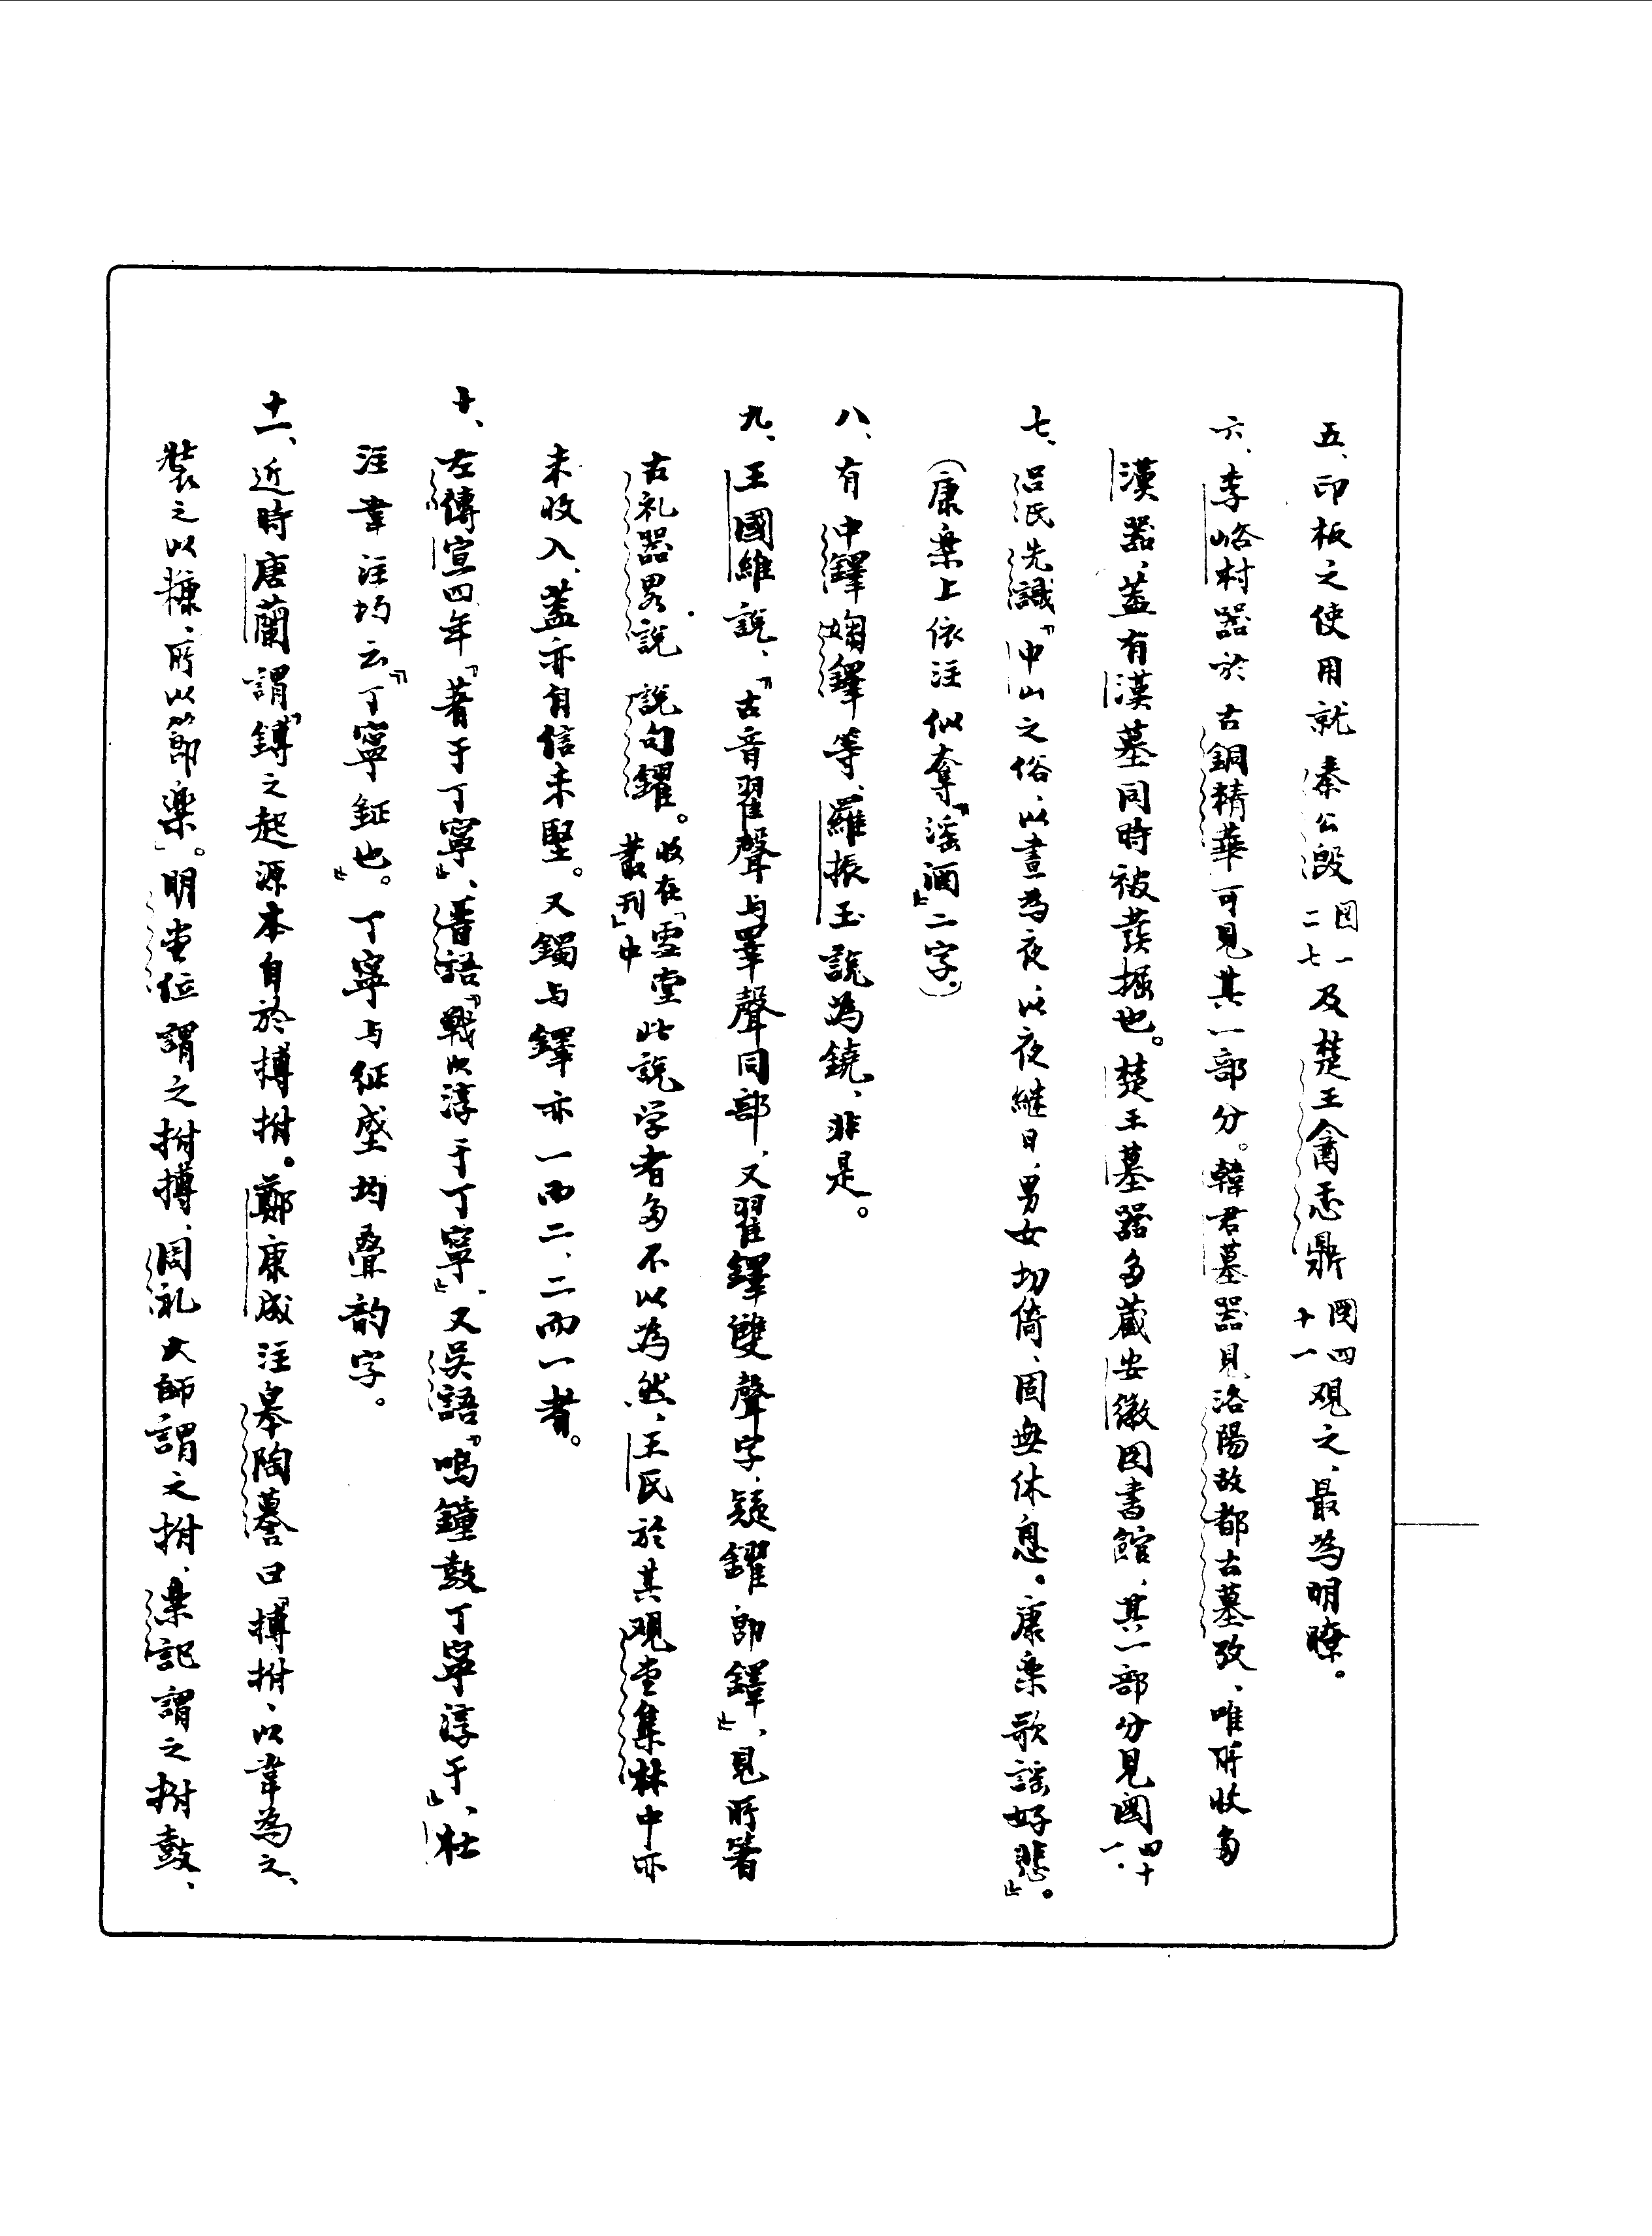 五、印板之使用就秦公𣪘图一二七及楚王酓忎鼎图四十一观之、最為明瞭。
六、李峪村器於古銅精華可見其一部分。韓君墓器見洛陽故都古墓攷、唯所收多
漢器、蓋有漢墓同時被發掘也。楚王墓器多藏安徽图書館、其一部分見图四十一.
七、呂氏先識「中山之俗、以晝為夜、以夜継日、男女切倚、固無休息。康楽歌謡好悲」。
（康楽上依注似奪「淫酒」二字。）
八、有中鐸𡣬鐸等、羅振玉說為鐃、非是。
九、王國維說、「古音翟聲与睪聲同部、又翟鐸雙聲字、疑鑃即鐸」、見所著
古礼器畧說 說句鑃。收在「雪堂叢刊」中 此說学者多不以為然、王氏於其观堂集林中亦
未收入、蓋亦自信未堅。又鐲与鐸亦一而二、二而一者。
十、左傳宣四年「著于丁寧」、晋語「戰以淳于丁寧」、又吳語「鳴鐘鼓丁寧淳于」、杜
注韋注均云「丁寧鉦也」。丁寧与鉦𥁊均叠韵字。
十一、近時唐蘭謂「鎛之起源本自於搏拊。鄭康成注皋陶謩曰「搏拊、以韋為之、
裝之以穅、所以節楽」。明堂位謂之拊搏、周礼大師謂之拊、楽記謂之拊鼓、